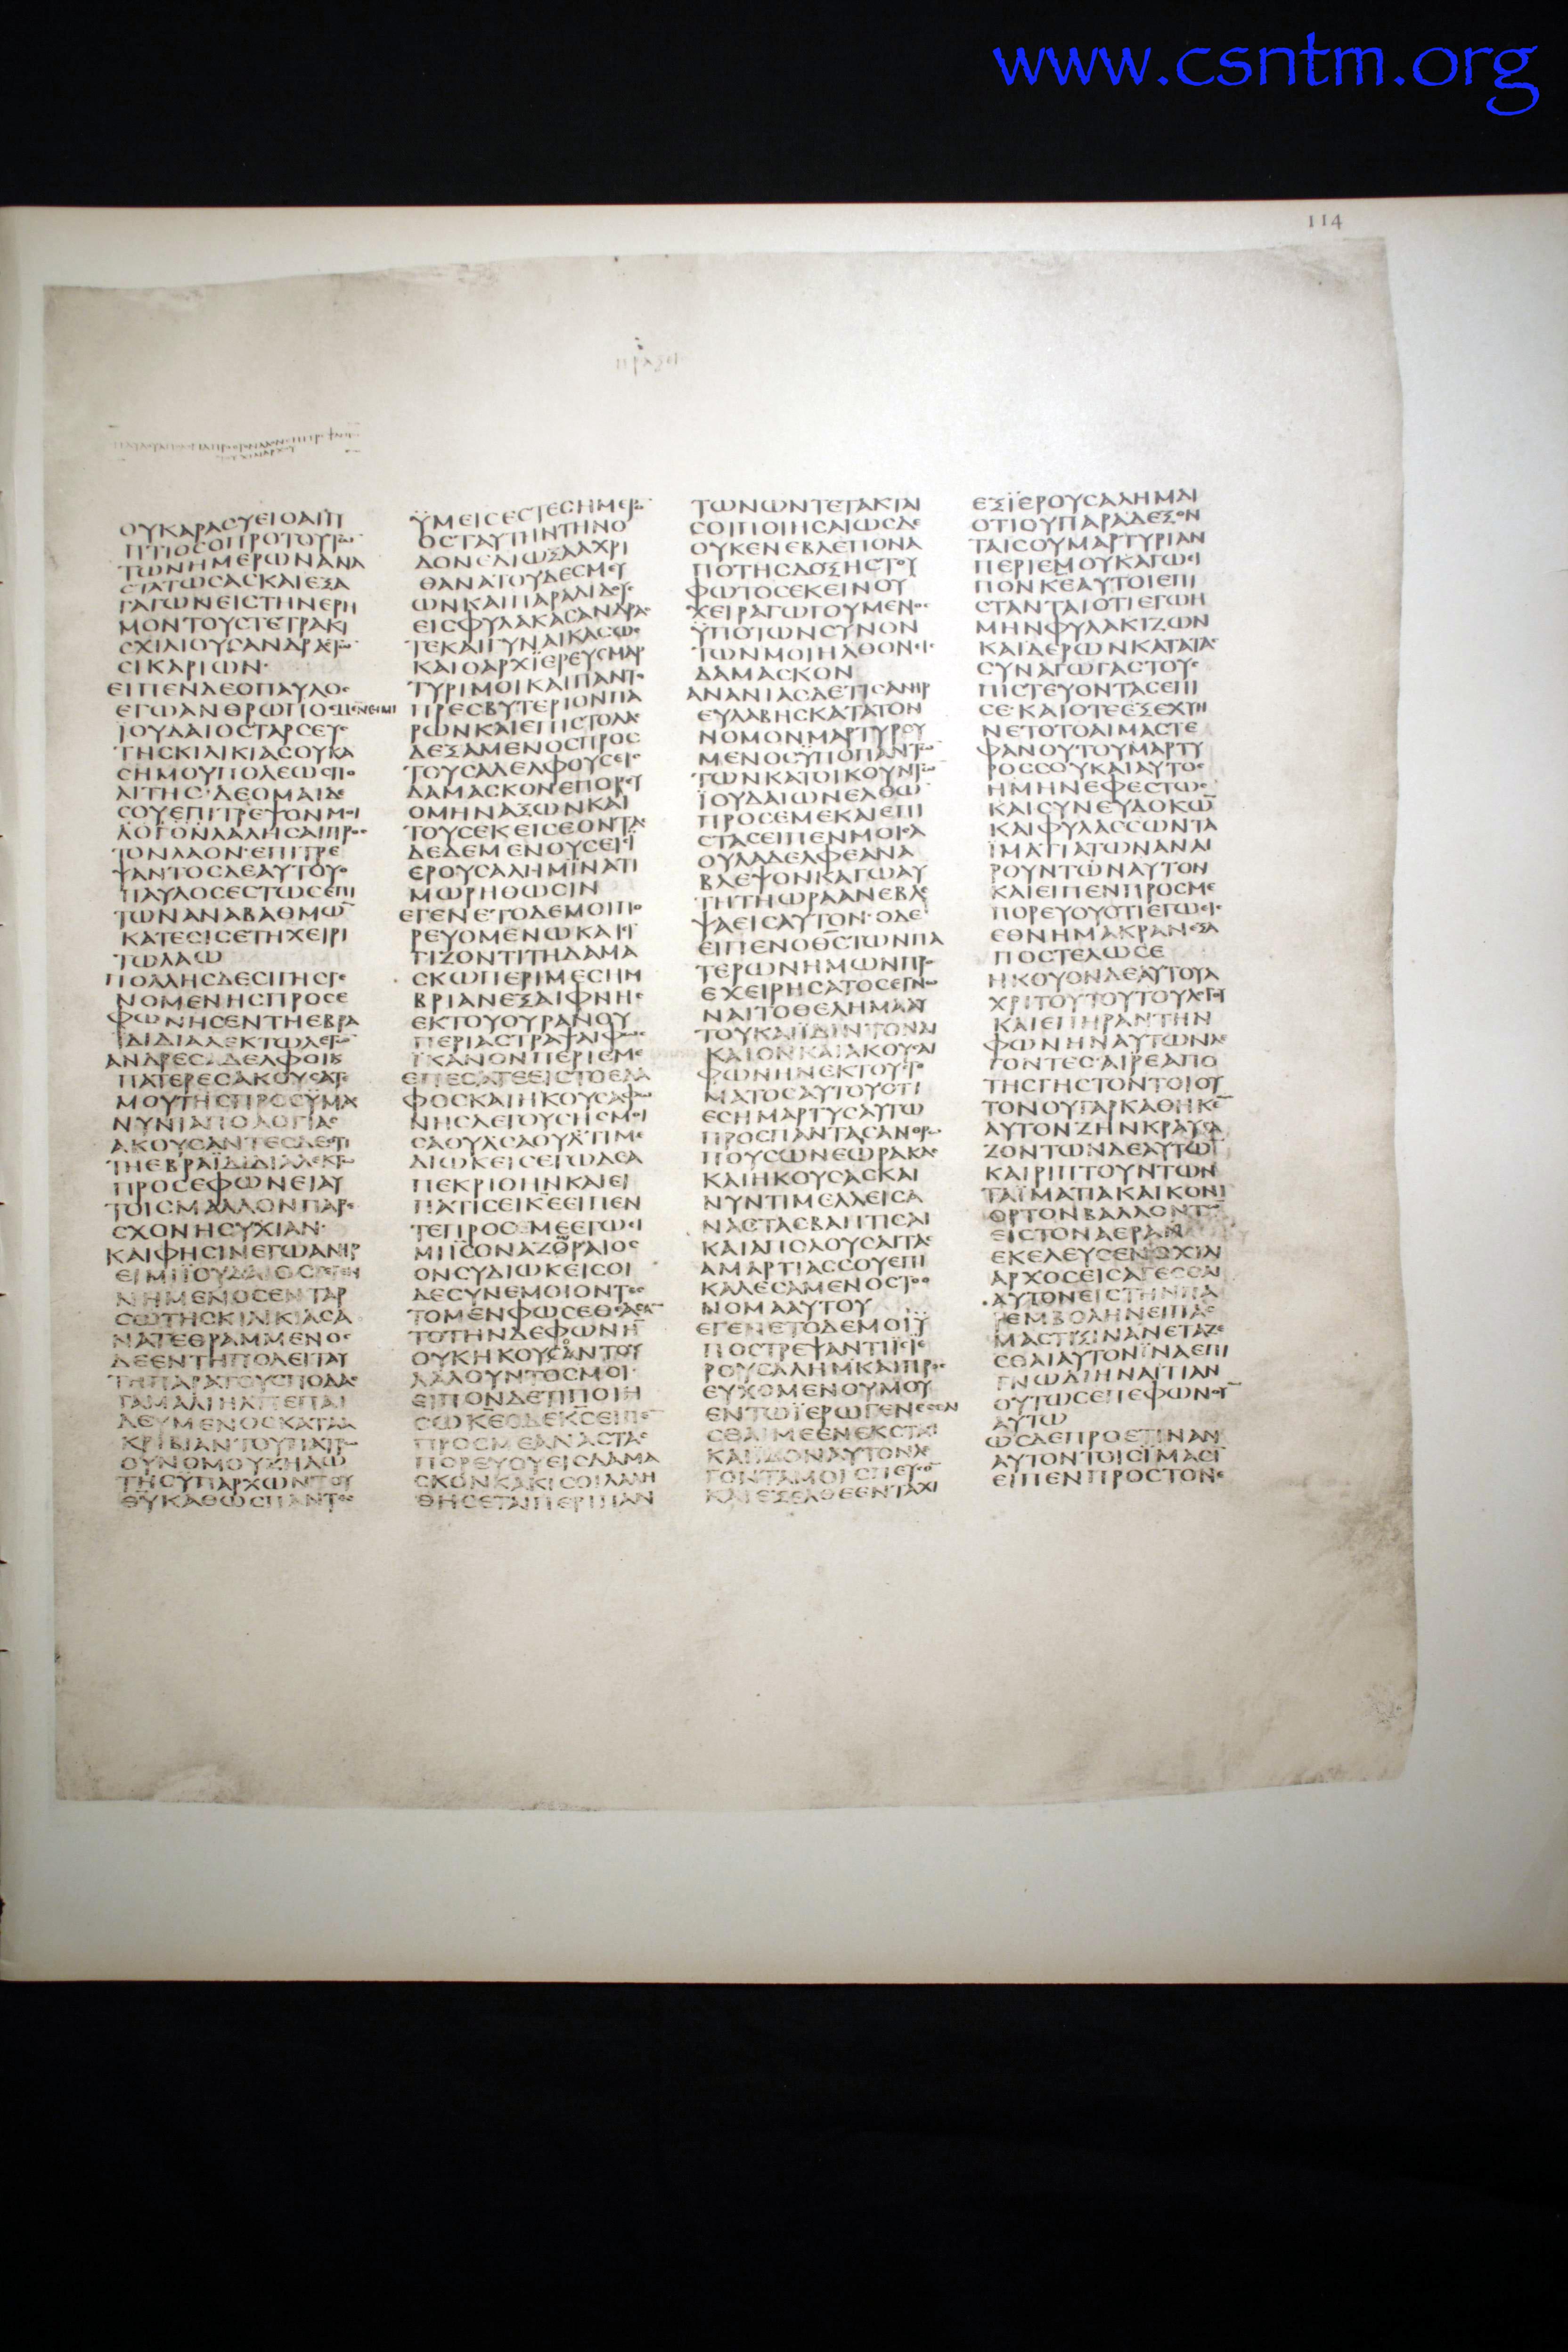 www.csntm.org
114
ΟΥΚΑΡΑΣΥΕΙΟΑΙΓΥ
ΠΤΙΟCΟΠΡΟΤΟΥΤΩ
ΤΩΝΗΜΕΡΩΝΑΝΑ
CΤΑΤΩCΑCΚΑΙΕΞΑ
ΓΑΓΩΝΕΙCΤΗΝΕΡΗ
ΜΟΝΤΟΥCΤΕΤΡΑΚΙ
CΧΙΛΙΟΥCΑΝΔΡΑCΤΩ
CΙΚΑΡΙΩΝ·
ΕΙΠΕΝΔΕΟΠΑΥΛΟC
ΕΓΩΑΝΘΡΩΠΟCΜΕΝΕΙΜΙ
ΙΟΥΔΑΙΟCΤΑΡCΕΥC
ΤΗCΚΙΛΙΚΙΑCΟΥΚΑ
CΗΜΟΥΠΟΛΕΩCΠΟ
ΛΙΤΗC·ΔΕΟΜΑΙΔΕ
CΟΥΕΠΙΤΡΕΨΟΝΜΟΙ
ΛΟΓΟΝΛΑΛΗCΑΙΠΡΟC
ΤΟΝΛΑΟΝ·ΕΠΙΤΡΕ
ΨΑΝΤΟCΔΕΑΥΤΟΥΟ
ΠΑΥΛΟCΕCΤΩCΕΠΙ
ΤΩΝΑΝΑΒΑΘΜΩ̅
ΚΑΤΕCΙCΕΤΗΧΕΙΡΙ
ΤΩΛΑΩ
ΠΟΛΛΗCΔΕCΙΓΗCΓΕ
ΝΟΜΕΝΗCΠΡΟCΕ
ΦΩΝΗCΕΝΤΗΕΒΡΑ
ΪΔΙΔΙΑΛΕΚΤΩΛΕΓΩ
ΑΝΔΡΕCΑΔΕΛΦΟΙΚ
ΠΑΤΕΡΕCΑΚΟΥCΑΤΕ
ΜΟΥΤΗCΠΡΟCΫΜΑC
ΝΥΝΙΑΠΟΛΟΓΙΑC
ΑΚΟΥCΑΝΤΕCΔΕΟΤΙ
ΤΗΕΒΡΑΪΔΙΔΙΑΛΕΚΤΩ
ΠΡΟCΕΦΩΝΕΙΑΥ
ΤΟΙCΜΑΛΛΟΝΠΑΡΕ
CΧΟΝΗCΥΧΙΑΝ·
ΚΑΙΦΗCΙΝΕΓΩΑΝΗΡ
ΕΙΜΙΪΟΥΔΑΙΟCΓΕΓΕΝ
ΝΗΜΕΝΟCΕΝΤΑΡ
CΩΤΗCΚΙΛΙΚΙΑCΑ
ΝΑΤΕΘΡΑΜΜΕΝΟC
ΔΕΕΝΤΗΠΟΛΕΙΤΑΥ
ΤΗΠΑΡΑΤΟΥCΠΟΔΑC
ΓΑΜΑΛΙΗΛΠΕΠΑΙ
ΔΕΥΜΕΝΟCΚΑΤΑΑ
ΚΡΙΒΙΑΝΤΟΥΠΑΤΡΩ
ΟΥΝΟΜΟΥΖΗΛΩ
ΤΗCΥΠΑΡΧΩΝΤΟΥ
Θ̅Υ̅ΚΑΘΩCΠΑΝΤΕC
ΫΜΕΙCΕCΤΕCΗΜΕΡΟ
ΟCΤΑΥΤΗΝΤΗΝΟ
ΔΟΝΕΔΙΩΞΑΑΧΡΙ
ΘΑΝΑΤΟΥΔΕCΜΕΥ
ΩΝΚΑΙΠΑΡΑΔΙΔΟΥC
ΕΙCΦΥΛΑΚΑCΑΝΔΡΑC
ΤΕΚΑΙΓΥΝΑΙΚΑCΩC
ΚΑΙΟΑΡΧΪΕΡΕΥCΜΑΡ
ΤΥΡΙΜΟΙΚΑΙΠΑΝΤΟ
ΠΡΕCΒΥΤΕΡΙΟΝΠΑ
ΡΩΝΚΑΙΕΠΙCΤΟΛΑC
ΔΕΞΑΜΕΝΟCΠΡΟC
ΤΟΥCΑΔΕΛΦΟΥCΕΙC
ΔΑΜΑCΚΟΝΕΠΟΡΕΥ
ΟΜΗΝΑΞΩΝΚΑΙ
ΤΟΥCΕΚΕΙCΕΟΝΤΑC
ΔΕΔΕΜΕΝΟΥCΕΙCΪ
ΕΡΟΥCΑΛΗΜΪΝΑΤΙ
ΜΩΡΗΘΩCΙΝ
ΕΓΕΝΕΤΟΔΕΜΟΙΠΟ
ΡΕΥΟΜΕΝΩΚΑΙΕΓ
ΓΙΖΟΝΤΙΤΗΔΑΜΑ
CΚΩΠΕΡΙΜΕCΗΜ
ΒΡΙΑΝΕΞΑΙΦΝΗC
ΕΚΤΟΥΟΥΡΑΝΟΥ
ΠΕΡΙΑCΤΡΑΨΑΙΦΩC
ΪΚΑΝΟΝΠΕΡΙΕΜΕ
ΕΠΕCΑΤΕΕΙCΤΟΕΔΑ
ΦΟCΚΑΙΗΚΟΥCΑΦΩ
ΝΗCΛΕΓΟΥCΗCΜΟΙ
CΑΟΥΛCΑΟΥΛΤΙΜΕ
ΔΙΩΚΕΙCΕΓΩΔΕΑ
ΠΕΚΡΙΘΗΝΚΑΙΕΙ
ΠΑΤΙCΕΙΚ̅Ε̅ΕΙΠΕΝ
ΤΕΠΡΟCΜΕΕΓΩΕΙ
ΜΙΙ̅C̅ΟΝΑΖΩΡΑΙΟC
ΟΝCΥΔΙΩΚΕΙCΟΙ
ΔΕCΥΝΕΜΟΙΟΝΤΕC
ΤΟΜΕΝΦΩCΕΘΕΑCΑ
ΤΟΤΗΝΔΕΦΩΝΗ̅
ΟΥΚΗΚΟΥCΑΝΤΟΥ
ΛΑΛΟΥΝΤΟCΜΟΙ·
ΕΙΠΟΝΔΕΤΙΠΟΙΗ
CΩΚ̅Ε̅ΟΔΕΚ̅C̅ΕΙΠΕ̅
ΠΡΟCΜΕΑΝΑCΤΑC
ΠΟΡΕΥΟΥΕΙCΔΑΜΑ
CΚΟΝΚΑΚΙCΟΙΛΑΛΗ
ΘΗCΕΤΑΙΠΕΡΙΠΑΝ
ΤΩΝΩΝΤΕΤΑΚΤΑΙ
CΟΙΠΟΙΗCΑΙΩCΔΕ
ΟΥΚΕΝΕΒΛΕΠΟΝΑ
ΠΟΤΗCΔΟΞΗCΤΟΥ
ΦΩΤΟCΕΚΕΙΝΟΥ
ΧΕΙΡΑΓΩΓΟΥΜΕΝΟC
ΫΠΟΤΩΝCΥΝΟΝ
ΤΩΝΜΟΙΗΛΘΟΝΕΙC
ΔΑΜΑCΚΟΝ
ΑΝΑΝΙΑCΔΕΤΙCΑΝΗΡ
ΕΥΛΑΒΗCΚΑΤΑΤΟΝ
ΝΟΜΟΝΜΑΡΤΥΡΟΥ
ΜΕΝΟCΫΠΟΠΑΝΤΩ
ΤΩΝΚΑΤΟΙΚΟΥΝΤΩ
ΪΟΥΔΑΙΩΝΕΛΘΩ̅
ΠΡΟCΕΜΕΚΑΙΕΠΙ
CΤΑCΕΙΠΕΝΜΟΙCΑ
ΟΥΛΑΔΕΛΦΕΑΝΑ
ΒΛΕΨΟΝΚΑΓΩΑΥ
ΤΗΤΗΩΡΑΑΝΕΒΛΕ
ΨΑΕΙCΑΥΤΟΝ·ΟΔΕ
ΕΙΠΕΝΟΘ̅C̅ΤΩΝΠΑ
ΤΕΡΩΝΗΜΩΝΠΡΟ
ΕΧΕΙΡΗCΑΤΟCΕΓΝΩ
ΝΑΙΤΟΘΕΛΗΜΑΑΥ
ΤΟΥΚΑΙΪΔΙΝΤΟΝΔΙ
ΚΑΙΟΝΚΑΙΑΚΟΥCΑΙ
ΦΩΝΗΝΕΚΤΟΥCΤΟ
ΜΑΤΟCΑΥΤΟΥΟΤΙ
ΕCΗΜΑΡΤΥCΑΥΤΩ
ΠΡΟCΠΑΝΤΑCΑΝΘΡΩ
ΠΟΥCΩΝΕΩΡΑΚΑC
ΚΑΙΗΚΟΥCΑCΚΑΙ
ΝΥΝΤΙΜΕΛΛΕΙCΑ
ΝΑCΤΑCΒΑΠΤΙCΑΙ
ΚΑΙΑΠΟΛΟΥCΑΙΤΑC
ΑΜΑΡΤΙΑCCΟΥΕΠΙ
ΚΑΛΕCΑΜΕΝΟCΤΟΟ
ΝΟΜΑΑΥΤΟΥ
ΕΓΕΝΕΤΟΔΕΜΟΙΫ
ΠΟCΤΡΕΨΑΝΤΙΕΙCΪΕ
ΡΟΥCΑΛΗΜΚΑΙΠΡΟC
ΕΥΧΟΜΕΝΟΥΜΟΥ
ΕΝΤΩΪΕΡΩΓΕΝΕCΘΑΙ
CΘΑΙΜΕΕΝΕΚCΤΑΙ
ΚΑΙΪΔΟΝΑΥΤΟΝΛΕ
ΓΟΝΤΑΜΟΙCΠΕΥCΟ̅
ΚΑΙΕΞΕΛΘΕΕΝΤΑΧΙ
ΕΞΪΕΡΟΥCΑΛΗΜΔΙ
ΟΤΙΟΥΠΑΡΑΔΕΞΟΝ
ΤΑΙCΟΥΜΑΡΤΥΡΙΑΝ
ΠΕΡΙΕΜΟΥΚΑΓΩΕΙ
ΠΟΝΚ̅Ε̅ΑΥΤΟΙΕΠΙ
CΤΑΝΤΑΙΟΤΙΕΓΩΗ
ΜΗΝΦΥΛΑΚΙΖΩΝ
ΚΑΙΔΕΡΩΝΚΑΤΑΤΑC
CΥΝΑΓΩΓΑCΤΟΥC
ΠΙCΤΕΥΟΝΤΑCΕΠΙ
CΕ·ΚΑΙΟΤΕΕΞΕΧΥΝ
ΝΕΤΟΤΟΑΙΜΑCΤΕ
ΦΑΝΟΥΤΟΥΜΑΡΤΥ
ΡΟCCΟΥΚΑΙΑΥΤΟC
ΗΜΗΝΕΦΕCΤΩC
ΚΑΙCΥΝΕΥΔΟΚΩ̅
ΚΑΙΦΥΛΑCCΩΝΤΑ
ΪΜΑΤΙΑΤΩΝΑΝΑΙ
ΡΟΥΝΤΩΝΑΥΤΟΝ
ΚΑΙΕΙΠΕΝΠΡΟCΜΕ
ΠΟΡΕΥΟΥΟΤΙΕΓΩΕΙC
ΕΘΝΗΜΑΚΡΑΝΕΞΑ
ΠΟCΤΕΛΩCΕ
ΗΚΟΥΟΝΔΕΑΥΤΟΥΑ
ΧΡΙΤΟΥΤΟΥΤΟΥΛΟΓΟΥ
ΚΑΙΕΠΗΡΑΝΤΗΝ
ΦΩΝΗΝΑΥΤΩΝΛΕ
ΓΟΝΤΕC·ΑΙΡΕΑΠΟ
ΤΗCΓΗCΤΟΝΤΟΙΟΥ
ΤΟΝΟΥΓΑΡΚΑΘΗΚΕ̅
ΑΥΤΟΝΖΗΝΚΡΑΥΓΑ
ΖΟΝΤΩΝΔΕΑΥΤΩ̅
ΚΑΙΡΙΠΤΟΥΝΤΩΝ
ΤΑΪΜΑΤΙΑΚΑΙΚΟΝΙ
ΟΡΤΟΝΒΑΛΛΟΝΤΩ̅
ΕΙCΤΟΝΑΕΡΑΝ
ΕΚΕΛΕΥCΕΝΟΧΙΛΙ
ΑΡΧΟCΕΙCΑΓΕCΘΑΙ
ΑΥΤΟΝΕΙCΤΗΝΠΑ
ΡΕΜΒΟΛΗΝΕΙΠΑC
ΜΑCΤΙΞΙΝΑΝΕΤΑΖΕ
CΘΑΙΑΥΤΟΝΪΝΑΕΠΙ
ΓΝΩΔΙΗΝΑΙΤΙΑΝ
ΟΥΤΩCΕΠΕΦΩΝΟΥ̅
ΑΥΤΩ
ΩCΔΕΠΡΟΕΤΙΝΑΝ
ΑΥΤΟΝΤΟΙCΪΜΑCΙ̅
ΕΙΠΕΝΠΡΟCΤΟΝΕ